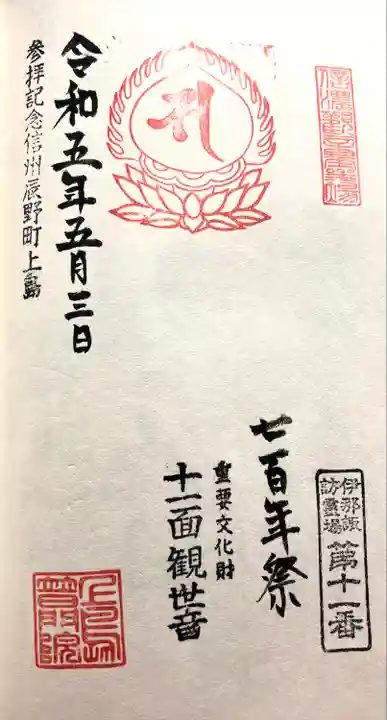 七百年祭
重要文化財
十一面観世音
令和五年五月三日
参拝記念信州辰野町上島
伊那諏
訪霊場
第十一番